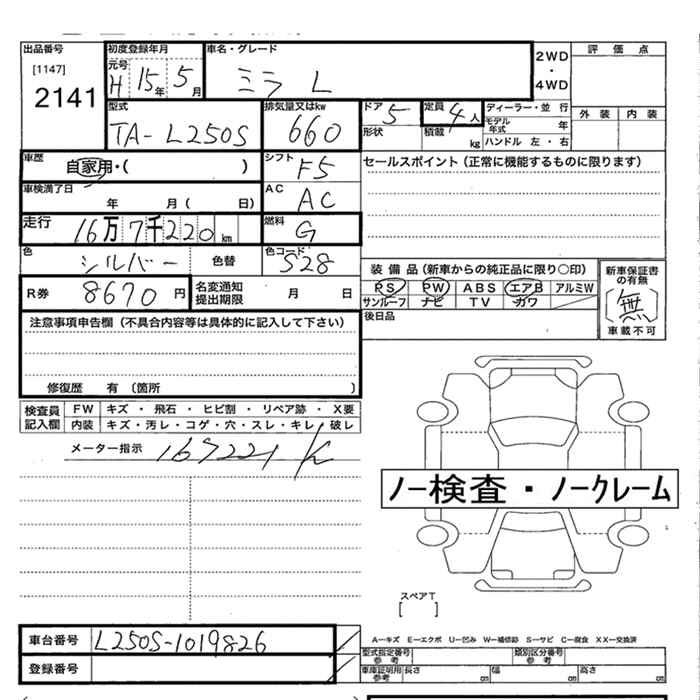 出品番号 初度登録年月 車名・グレード 2WD・4WD 評価点
[1147] 元号 H 15年 5月 ミラ L
2141 外装 内装
型式 排気量又はkw ドア 5 定員 4人 ディーラー・並行
TA-L250S 660 形状 積載 kg モデル年式 年
ハンドル 左・右
車歴 自家用・( ) シフト F5 セールスポイント (正常に機能するものに限ります)
車検満了日 年 月( 日) AC AC
走行 16万7千220km 燃料 G
色 シルバー 色替 色コード S28
装備品(新車からの純正品に限り○印) 新車保証書の有無
R券 8670円 名変通知提出期限 月 日 PS PW ABS エアB アルミW (無)
サンルーフ ナビ TV カワ 車載不可
注意事項申告欄(不具合内容等は具体的に記入して下さい) 後日品
修復歴 有 (箇所 )
検査員記入欄 FW キズ・飛石・ヒビ割・リペア跡・X要
内装 キズ・汚レ・コゲ・穴・スレ・キレ・破レ
メーター指示 167221 K
ノー検査・ノークレーム
スペアT
[ ]
車台番号 L250S-1019826 A―キズ E―エクボ U―凹み W―補修跡 S―サビ C―腐食 XX―交換済
型式指定番号 参考 類別区分番号 参考
登録番号 車庫証明用 参考 長さ cm 幅 cm 高さ cm